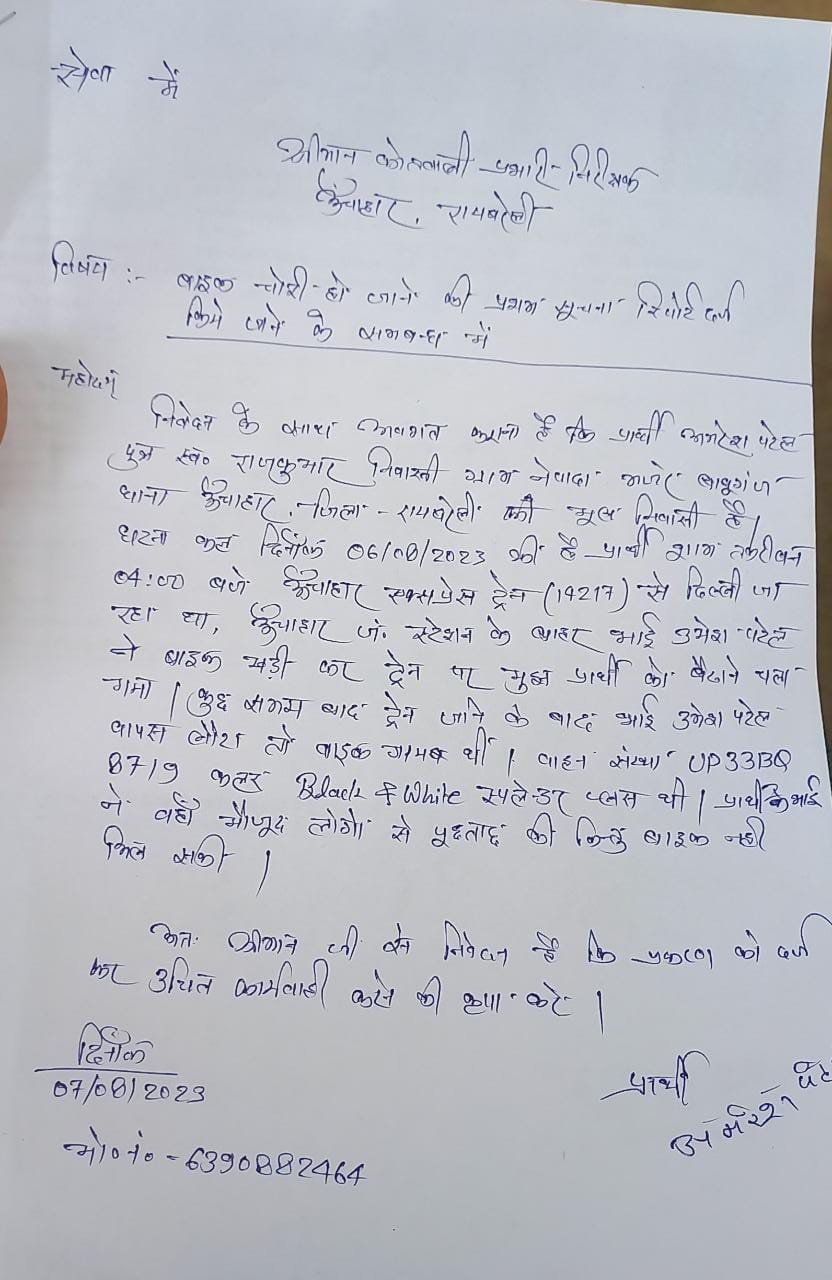 सेवा में
श्रीमान कोतवाली प्रभारी निरीक्षक
ऊँचाहार, रायबरेली
विषय :- बाइक चोरी हो जाने की प्रथम सूचना रिपोर्ट दर्ज
किये जाने के सम्बन्ध में
महोदय
निवेदन के साथ अवगत कराना है कि प्रार्थी अमरेश पटेल
पुत्र स्व० राजकुमार निवासी ग्राम नेवादा मजरे बाबूगंज
थाना ऊँचाहार, जिला - रायबरेली का मूल निवासी है।
घटना कल दिनाँक 06/08/2023 की है प्रार्थी शाम तकरीबन
04:00 बजे ऊँचाहार एक्सप्रेस ट्रेन (14217) से दिल्ली जा
रहा था, ऊँचाहार जं. स्टेशन के बाहर भाई उमेश पटेल
ने बाइक खड़ी कर ट्रेन पर मुझ प्रार्थी को बैठाने चला
गया। कुछ समय बाद ट्रेन जाने के बाद भाई उमेश पटेल
वापस लौटा तो बाइक गायब थी। वाहन संख्या UP33BQ
8719 कलर Black & White स्पलेन्डर प्लस थी। प्रार्थी के भाई
ने वहाँ मौजूद लोगो से पूछताछ की किन्तु बाइक नही
मिल सकी।
अतः श्रीमान जी से निवेदन है कि प्रकरण को दर्ज
कर उचित कार्यवाही करने की कृपा करें।
दिनाँक
07/08/2023
प्रार्थी
अमरेश पटे
मो० नं० - 6390882464